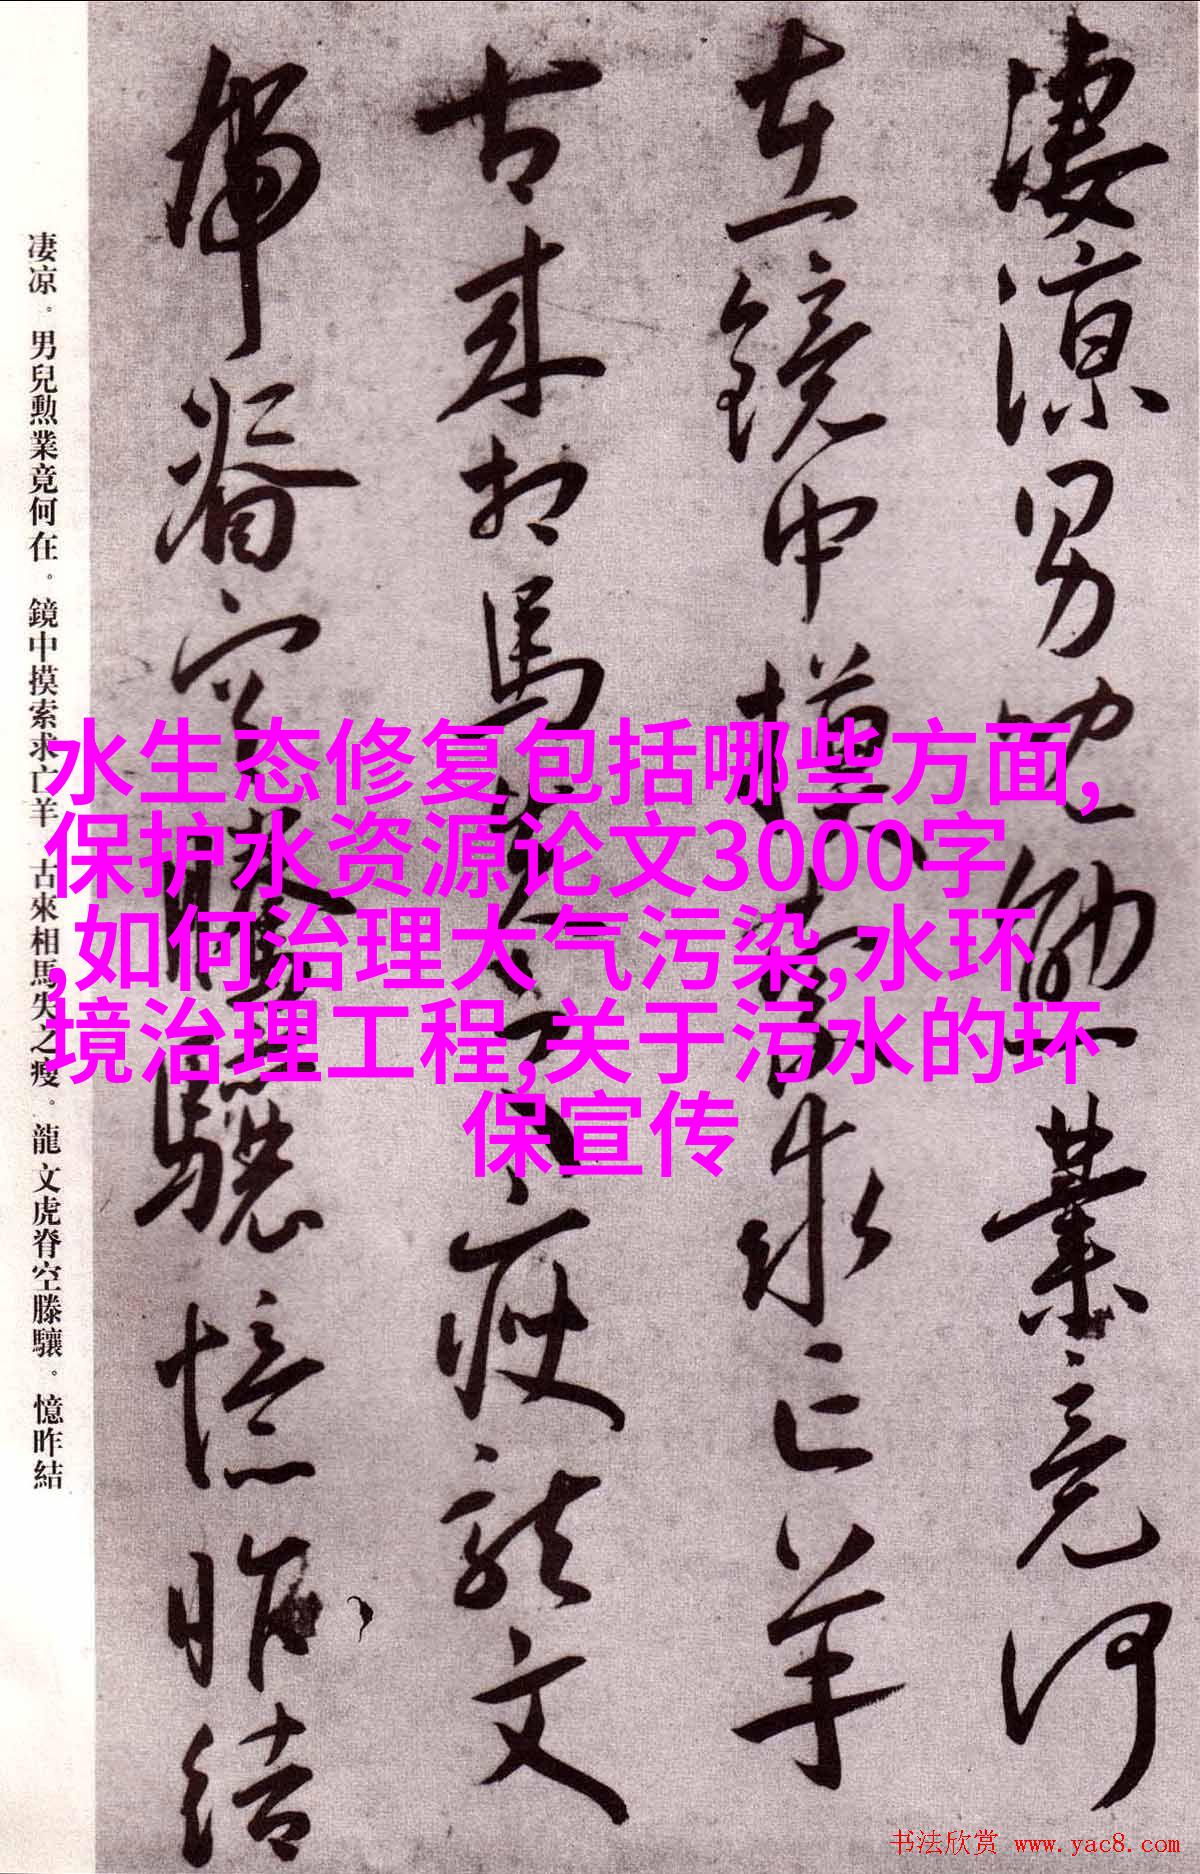 凄涼男兒勳業竟何
在鏡中摸索求亡羊
古来相馬失之瘦龍文
虎脊空騰驤憶昨結
凄凉。男兒勳業竟何在。鏡中摸索求亡羊 古來相馬失之瘦。龍文虎脊空滕驤。憶昨結
水生态修复包括哪些方面,
保护水资源论文3000字
,如何治理大气污染,水环
境治理工程,关于污水的环
保宣传
书法欣赏 www.yac8.com